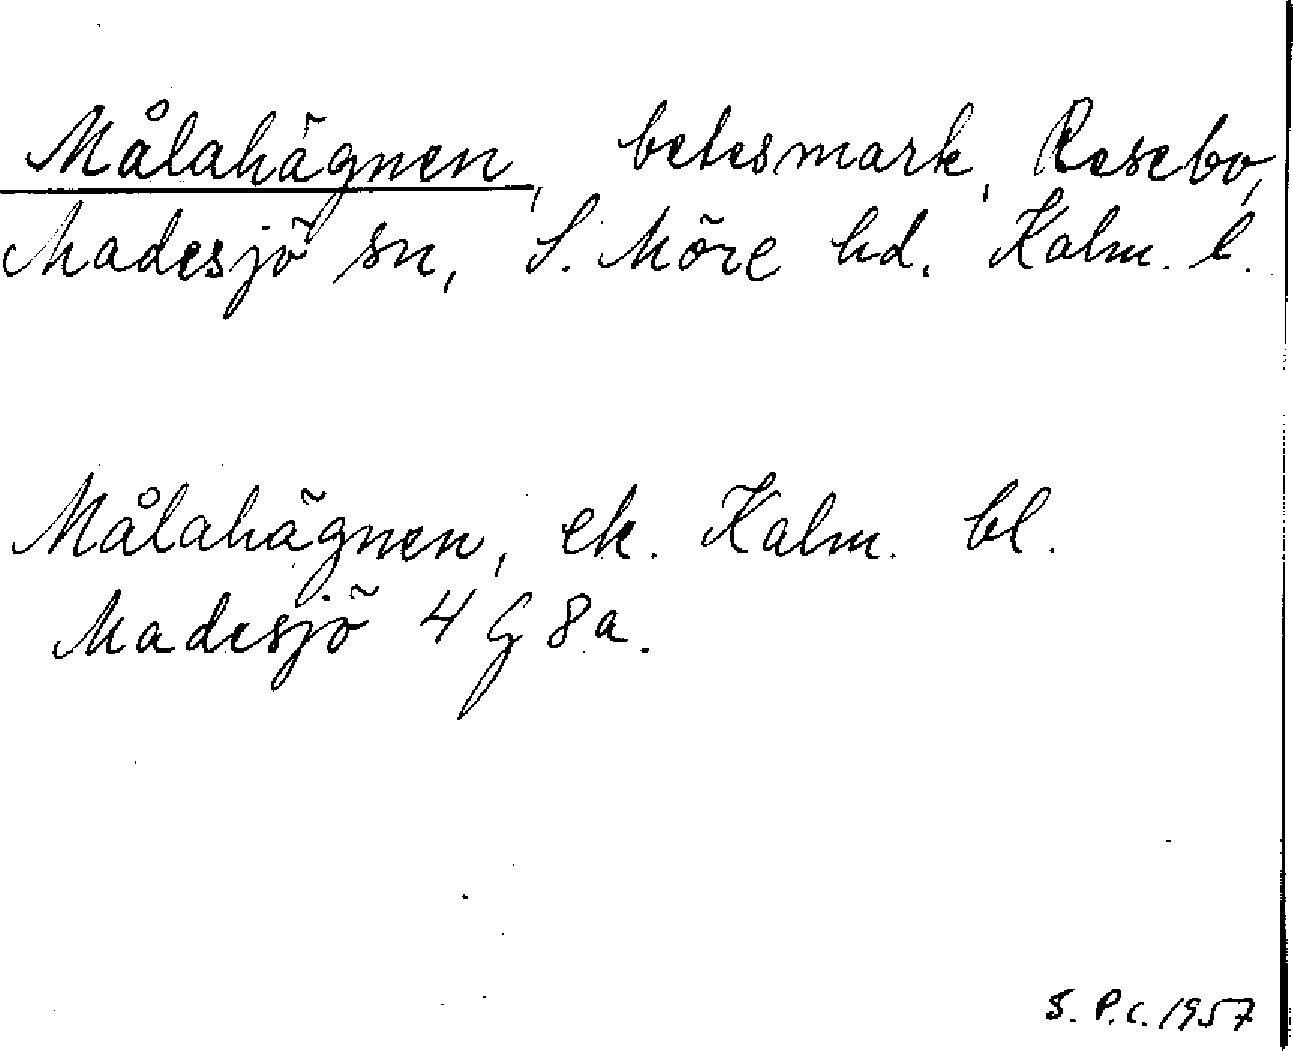 Målahägnen, betesmark, Resebo,
Madesjö sn, S. Möre hd. Kalm. l.
Målahägnen, ek. Kalm. bl.
Madesjö 4 G 8a.
S. P.C. 1957